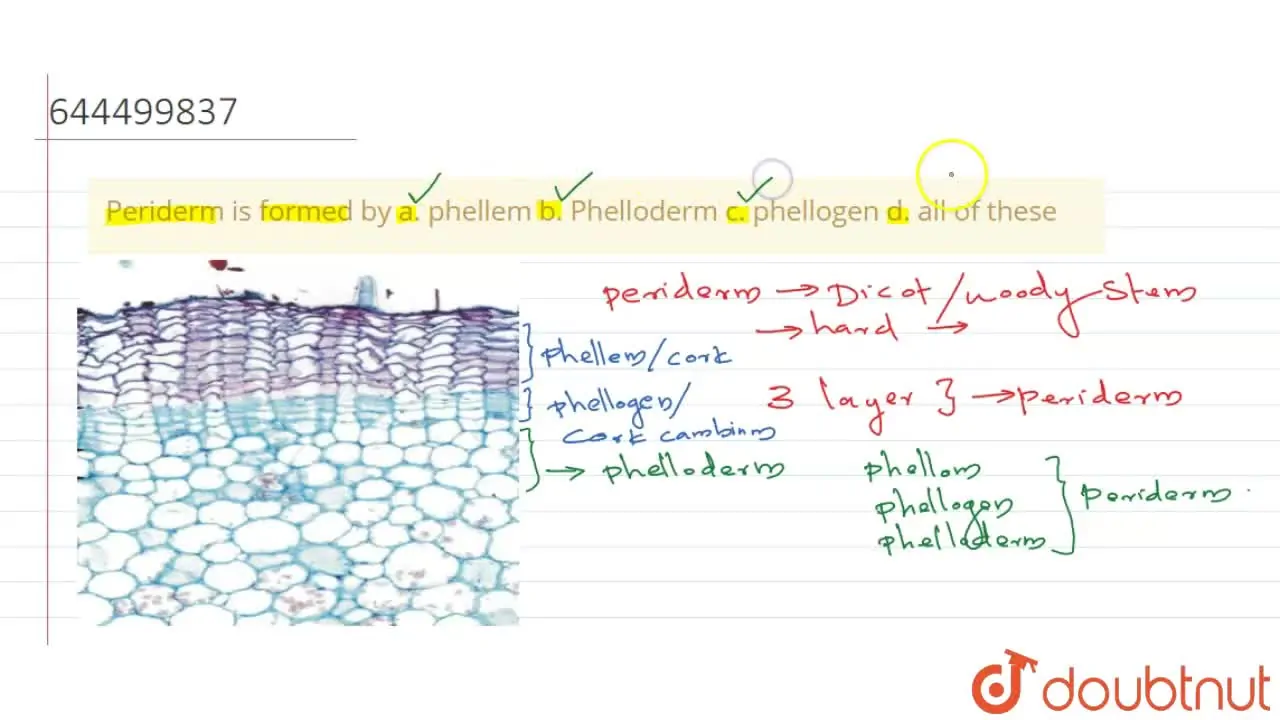 644499837
Periderm is formed by a. phellem b. Phelloderm c. phellogen d. all of these
periderm → Dicot / woody stem
→ hard →
phellem / cork
phellogen /
Cork cambium
→ phelloderm
3 layer } → periderm
phellem
phellogen
phelloderm
periderm
doubtnut